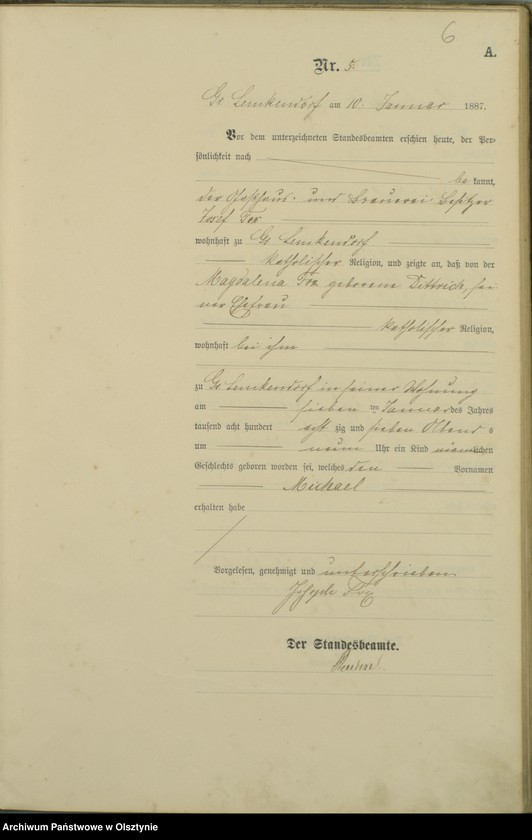 6
A.
Nr. 5.
Gr. Lemkendorf am 10. Januar 1887.
Vor dem unterzeichneten Standesbeamten erschien heute, der Per-
sönlichkeit nach
be kannt,
der Gasthaus- und Brauerei Besitzer
Josef Fox
wohnhaft zu Gr Lemkendorf
katholischer Religion, und zeigte an, daß von der
Magdalena Fox geborene Dittrich, sei
ner Ehefrau
katholischer Religion,
wohnhaft bei ihm
zu Gr Lemkendorf in seiner Wohnung
am sieben ten Januar des Jahres
tausend acht hundert acht zig und sieben Abend s
um neun Uhr ein Kind männlichen
Geschlechts geboren worden sei, welches den Vornamen
Michael
erhalten habe
Vorgelesen, genehmigt und unterschrieben
Fox
Der Standesbeamte.
Archiwum Państwowe w Olsztynie